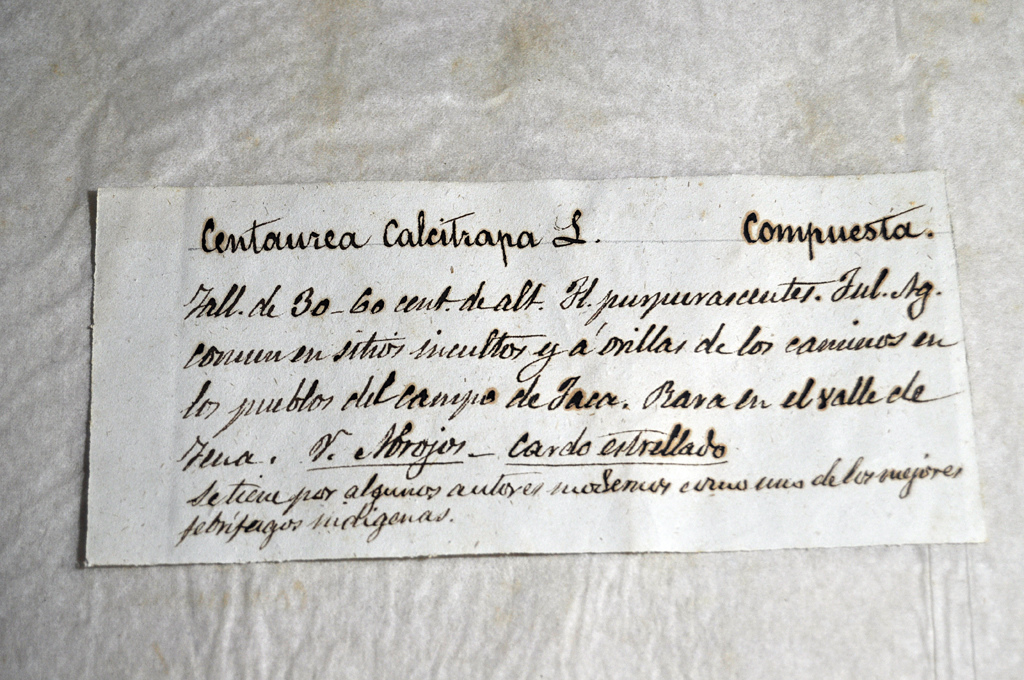 Centaurea Calcitrapa L. Compuesta.
Tall. de 30-60 cent. de alt. Fl. purpurascentes. Jul. Ag.
comun en sitios incultos y á orillas de los caminos en
los pueblos del campo de Jaca. Rara en el valle de
Tena. V. Abrojos - cardo estrellado
se tiene por algunos autores modernos como uno de los mejores
febrífugos indigenas.